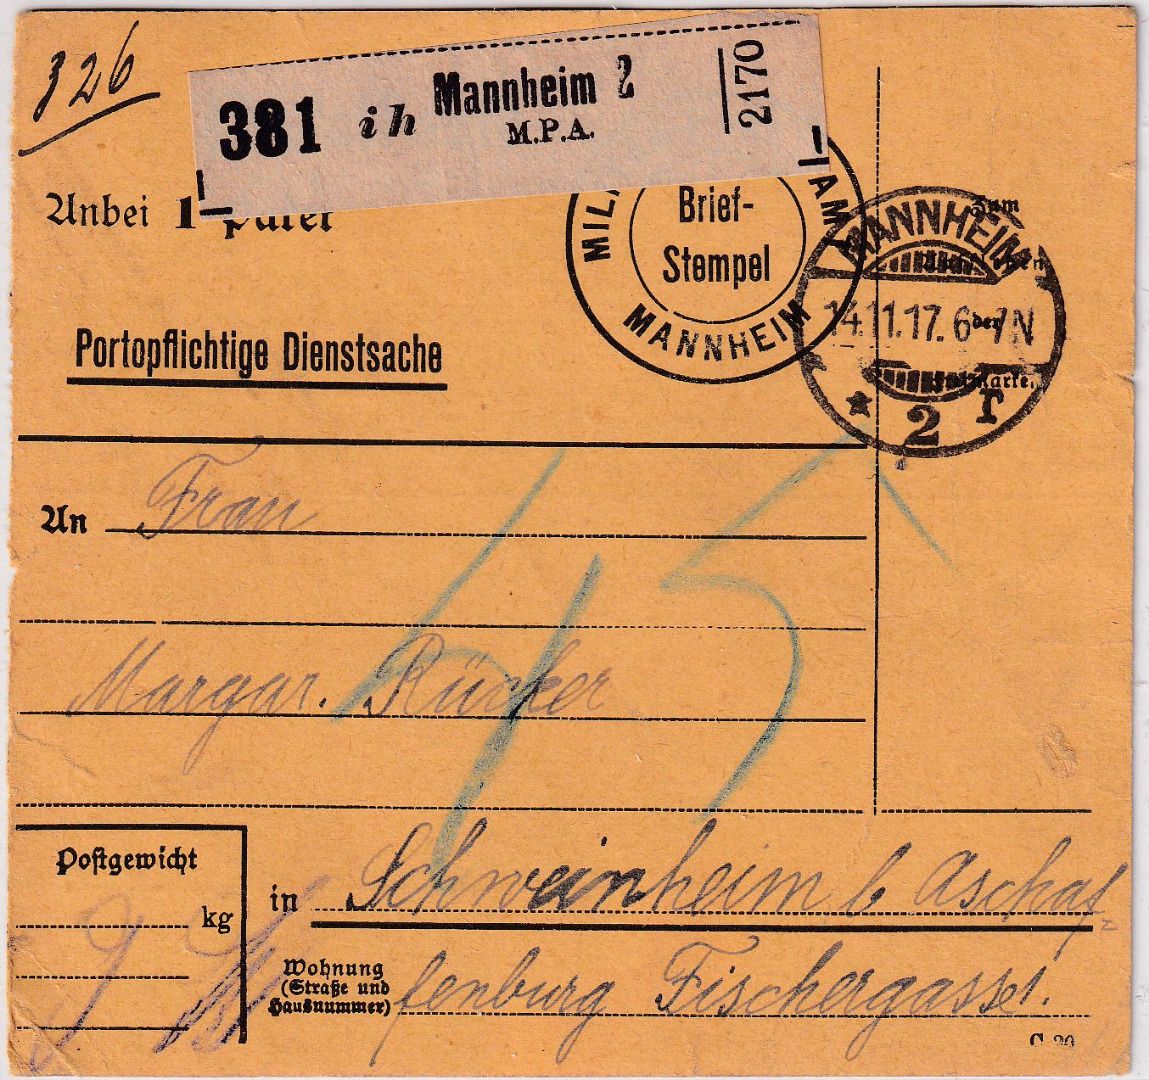 326
381 ih Mannheim 2
M.P.A.
2170
Anbei 1 Paket
MILI AMT
Brief-
Stempel
MANNHEIM
MANNHEIM
14.11.17. 6-7N
* 2 r
Zum
der
marke.
Portopflichtige Dienstsache
An Frau
Margar. Rücker
45
Postgewicht
9 kg
in Schweinheim b Aschaf=
Wohnung
(Straße und
Hausnummer)
fenburg Fischergasse 1.
C 20